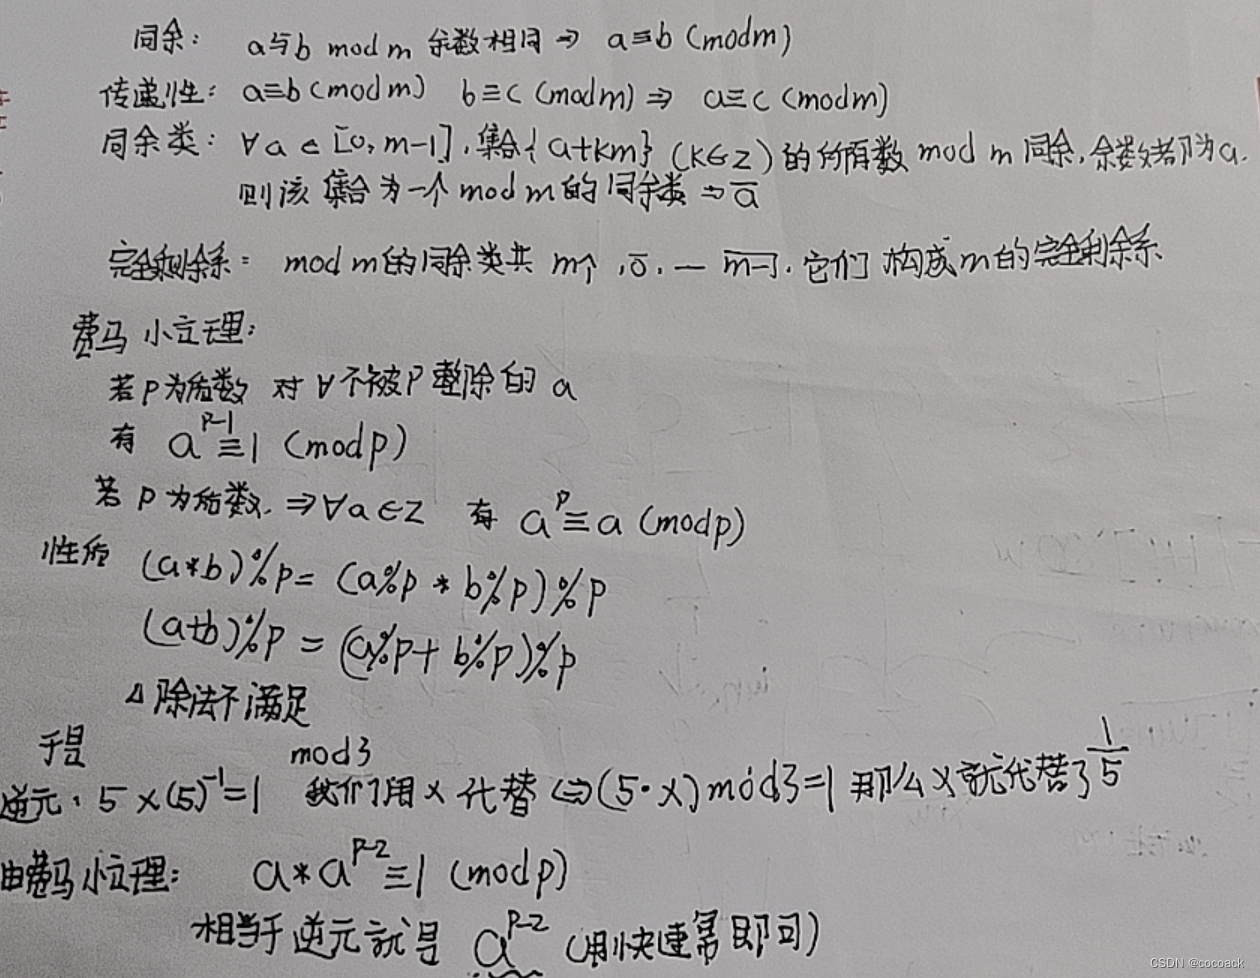 同余: a与b mod m 余数相同 ⇒ a≡b (mod m)
传递性: a≡b (mod m) b≡c (mod m) ⇒ a≡c (mod m)
同余类: ∀a∈[0, m-1], 集合{a+km} (k∈Z) 的所有数 mod m 同余, 余数都为a.
则该集合为一个 mod m 的同余类 ⇒ a̅
完全剩余系: mod m的同余类共 m个, 0̅, — m-1̅. 它们构成m的完全剩余系
费马小定理:
若P为质数 对∀不被P整除的 a
有 a^{p-1}≡1 (mod p)
若 P为质数. ⇒∀a∈Z 有 a^p≡a (mod p)
性质 (a*b)%p= (a%p * b%p)%p
(a+b)%p = (a%p+b%p)%p
△除法不满足
于是 mod3
逆元: 5×(5)^{-1}=1 我们用 x 代替 ⇔(5·x) mod3=1 那么x就代替了 1/5
由费马小定理: a*a^{p-2}≡1 (mod p)
相当于逆元就是 a^{p-2} (用快速幂即可)
CSDN @cocoack